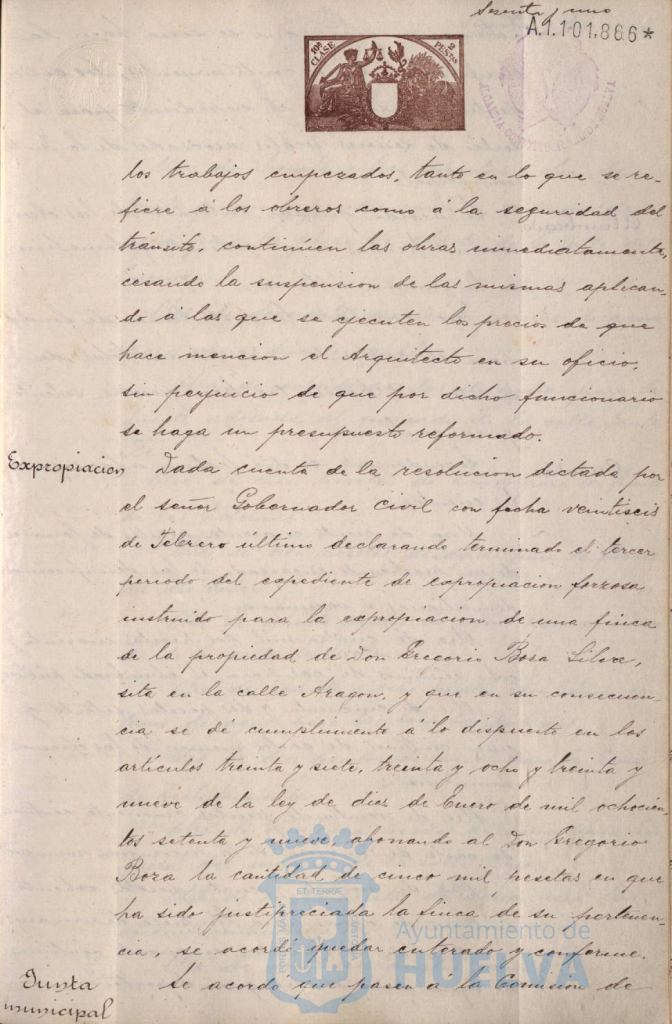 Sesenta y uno
A.1.101.866*
10ª CLASE
2 PESETAS
los trabajos empezados, tanto en lo que se re-
fiere á los obreros como á la seguridad del
tránsito, continúen las obras inmediatamente,
cesando la suspension de las mismas aplican-
do á las que se ejecuten los precios de que
hace mencion el Arquitecto en su oficio,
sin perjuicio de que por dicho funcionario
se haga un presupuesto reformado.
Expropiacion
Dada cuenta de la resolucion dictada por
el señor Gobernador civil con fecha veintiseis
de Febrero último declarando terminado el tercer
periodo del expediente de expropiacion forzosa
instruido para la expropiacion de una finca
de la propiedad de Don Gregorio Bora
sita en la calle Aragon, y que en su consecuen-
cia se dé cumplimiento á lo dispuesto en los
artículos treinta y siete, treinta y ocho y treinta y
nueve de la ley de diez de Enero de mil ochocien-
tos setenta y nueve, abonando al Don Gregorio
Bora la cantidad de cinco mil pesetas en que
ha sido justipreciada la finca de su pertenen-
cia, se acordó quedar enterado y conforme.
Junta
municipal
Se acordó que pasen á la Comision de
Ayuntamiento de
HUELVA